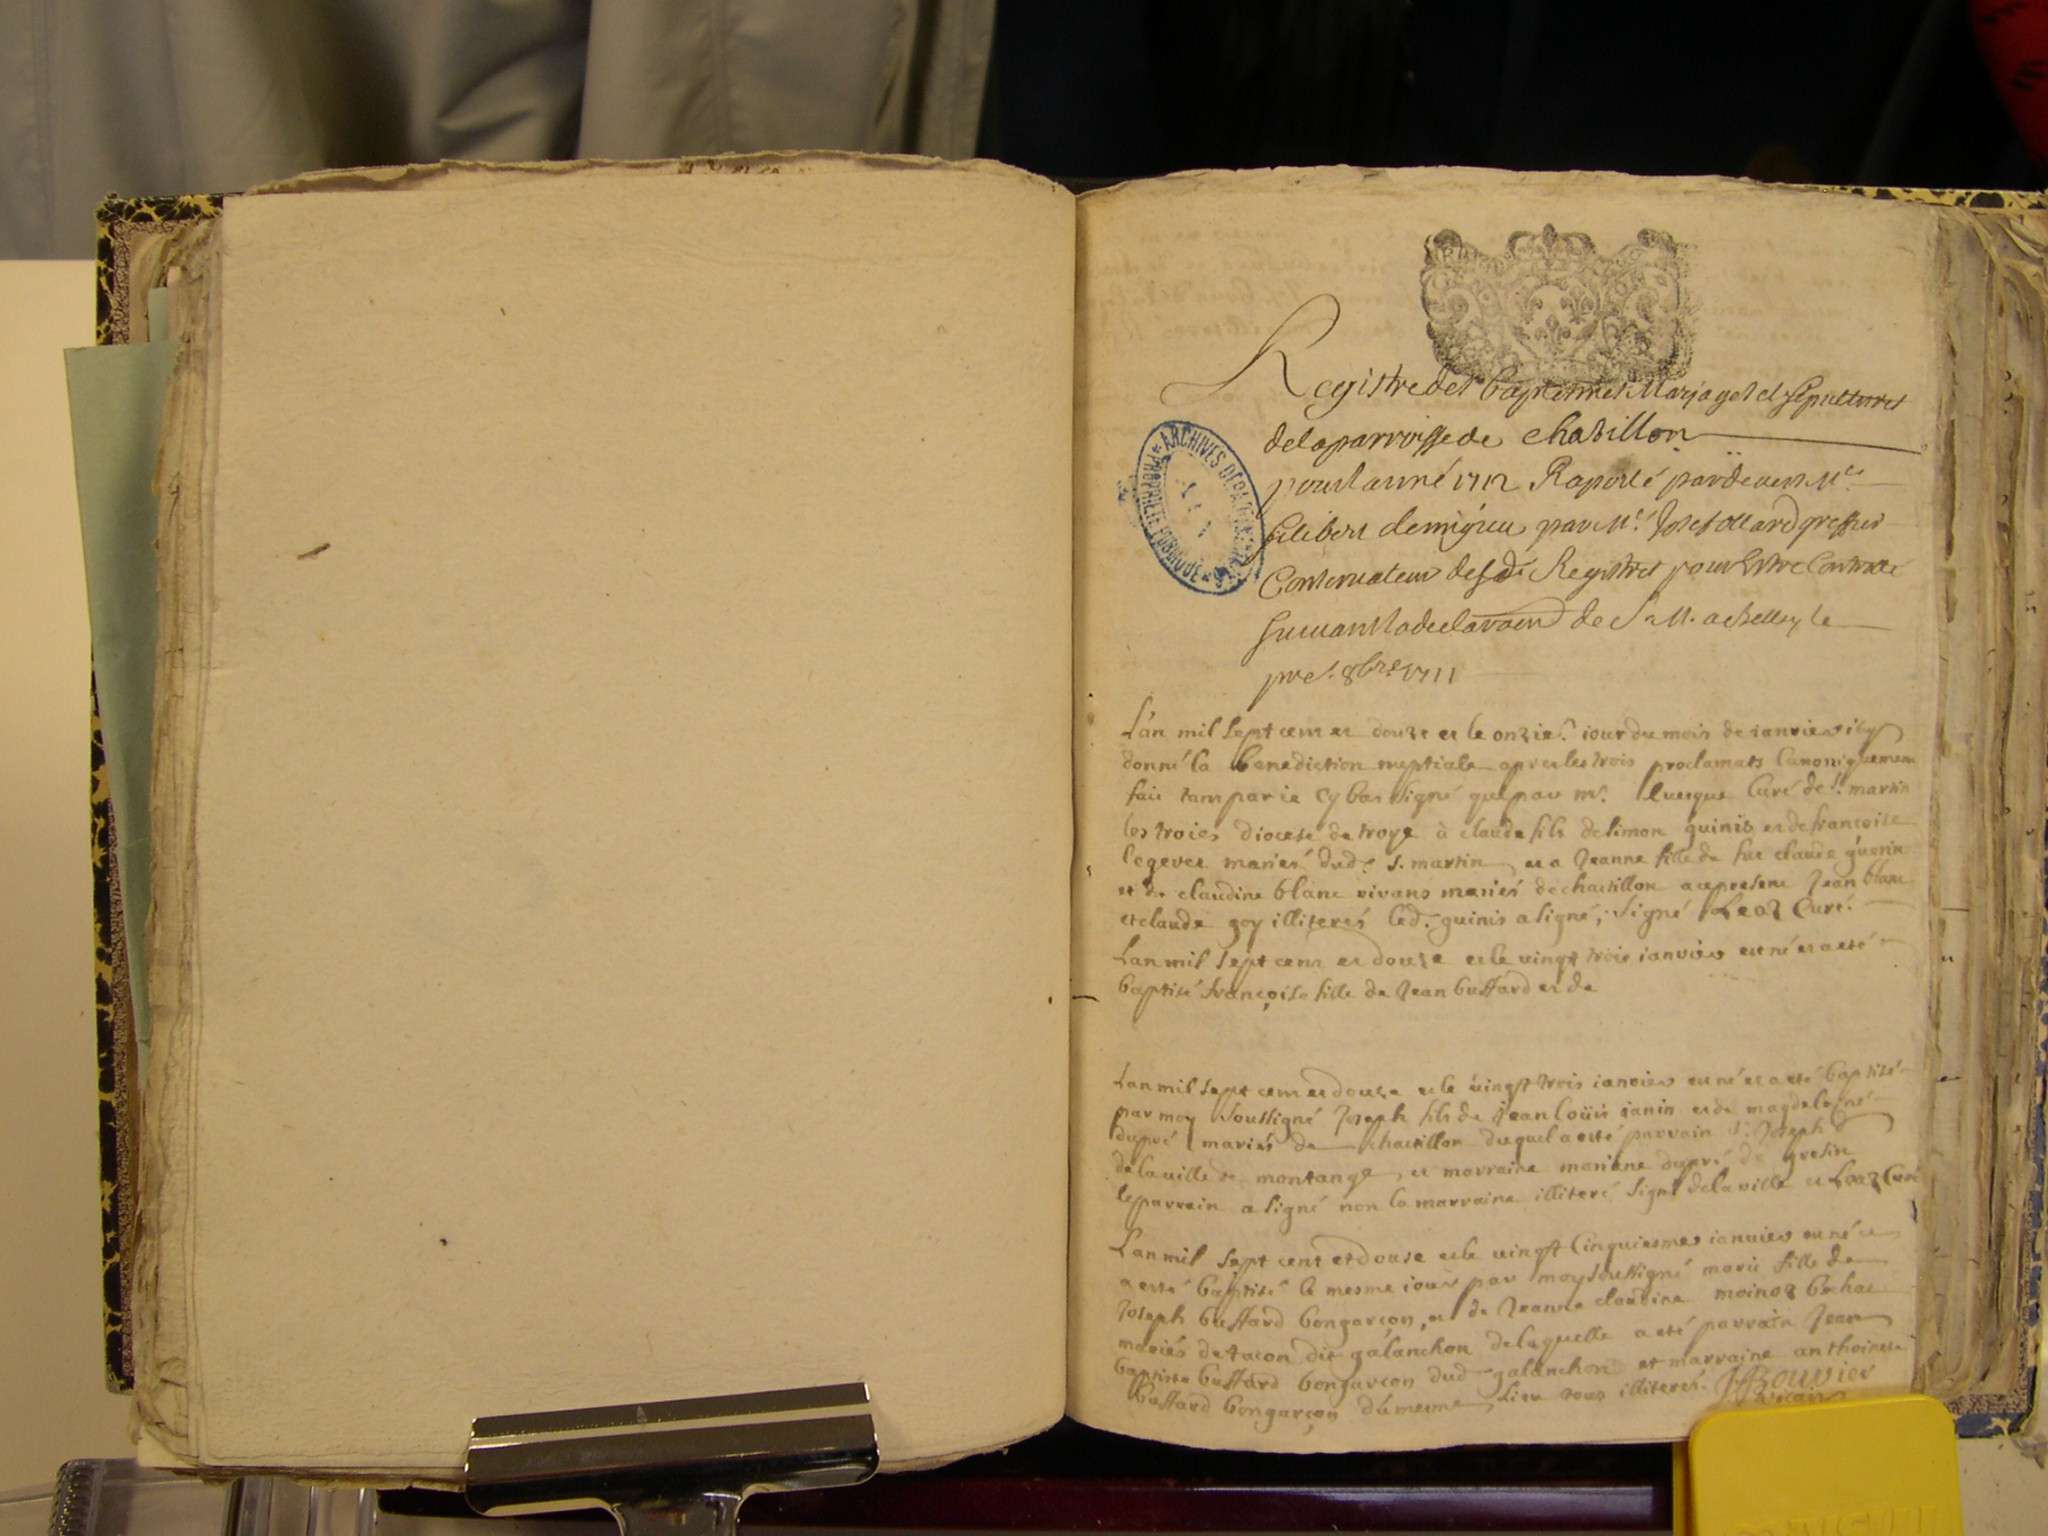 Registre des baptemes Mariages et sepultures
de la parroisse de chatillon
pour l'anné 1712 Raporté pardevant Mr
filibert demigieu par Mr greffier
Conservateur desd. Registres pour Estre Controllé
suivant la declaraon de S. M. a Belley le
pre. 8bre 1711
ARCHIVES DEPARTEMENTALES
L'an mil sept cens et douze et le onzie. iour du mois de ianvier i'ay
donné la benediction nuptiale apres les trois proclamats Canoniquement
fais tam par ie cy bas signé que par mr. Curé de St. martin
les troies diocese de troye à claude fils de simon guinis et de francoise
legever mariés dud. S. martin et a Jeanne fille de fue claude guerin
et de claudine blanc vivans mariés de chastillon a ce present Jean blanc
et claude goy illiterés led. guinis a signé, signé Leaz Curé.
Lan mil sept cens et douze et le vingt trois ianvier est né et a eté
baptisé françoise fille de Jean buffard et de
Lan mil sept cens et douze et le vingt trois ianvier est né et a eté baptisé
par moy soussigné Joseph fils de Jean loüis ianin et de magdeleine
dupré mariés de chastillon duquel a esté parrain Sr. Joseph
delaville de montange, et marraine mariane dupré de gresin
le parrain a signé non la marraine illiteré signé delaville et Leaz Curé
Lan mil sept cent et douse et le vingt Cinquiesme ianvier est né et
a esté baptisé le mesme iour par moy soussigné marie fille de
Joseph buffard bongarçon, et de Jeanne claudine moinoz
mariés de tacon dit galanchon de laquelle a eté parrain Jean
baptiste buffard bongarçon dud galanchon et marraine anthoinette
buffard bongarçon du mesme Lieu tous illiterés. Bouvier
vicaire